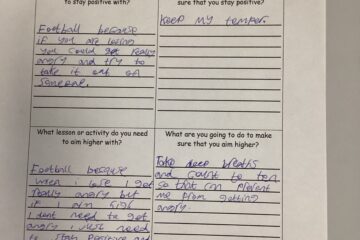 to stay positive with?
Football because
if you are losing
you could get really
angry and try to
take it out on
someone.
sure that you stay positive?
keep my temper
What lesson or activity do you need
to aim higher with?
Football because
when i lose I get
really angry but
if I aim high
I dont need to get
angry i just need
to stay positive and
What are you going to do to make
sure that you aim higher?
Take deep breaths
and count to ten
so that can prevent
me from getting
angry.